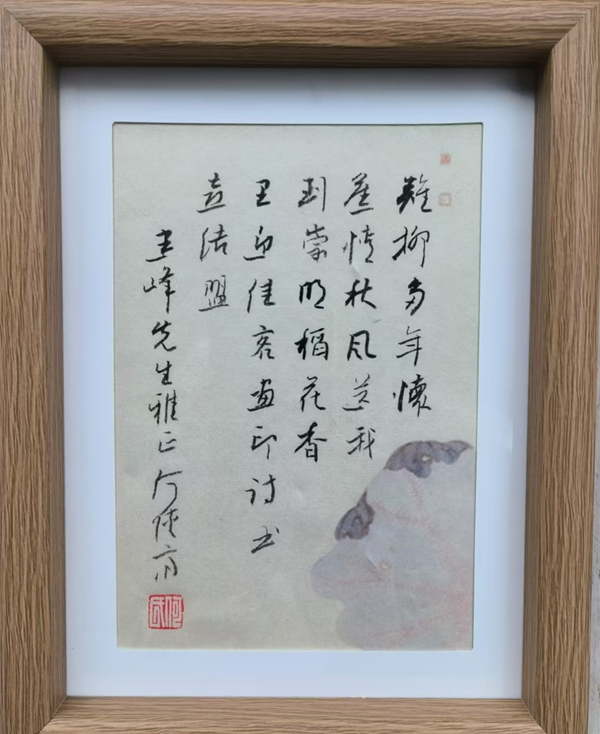 難抑当年懷
舊情秋风送我
到崇明稻花香
里迎佳客画印诗书
喜结盟
峰先生雅正何